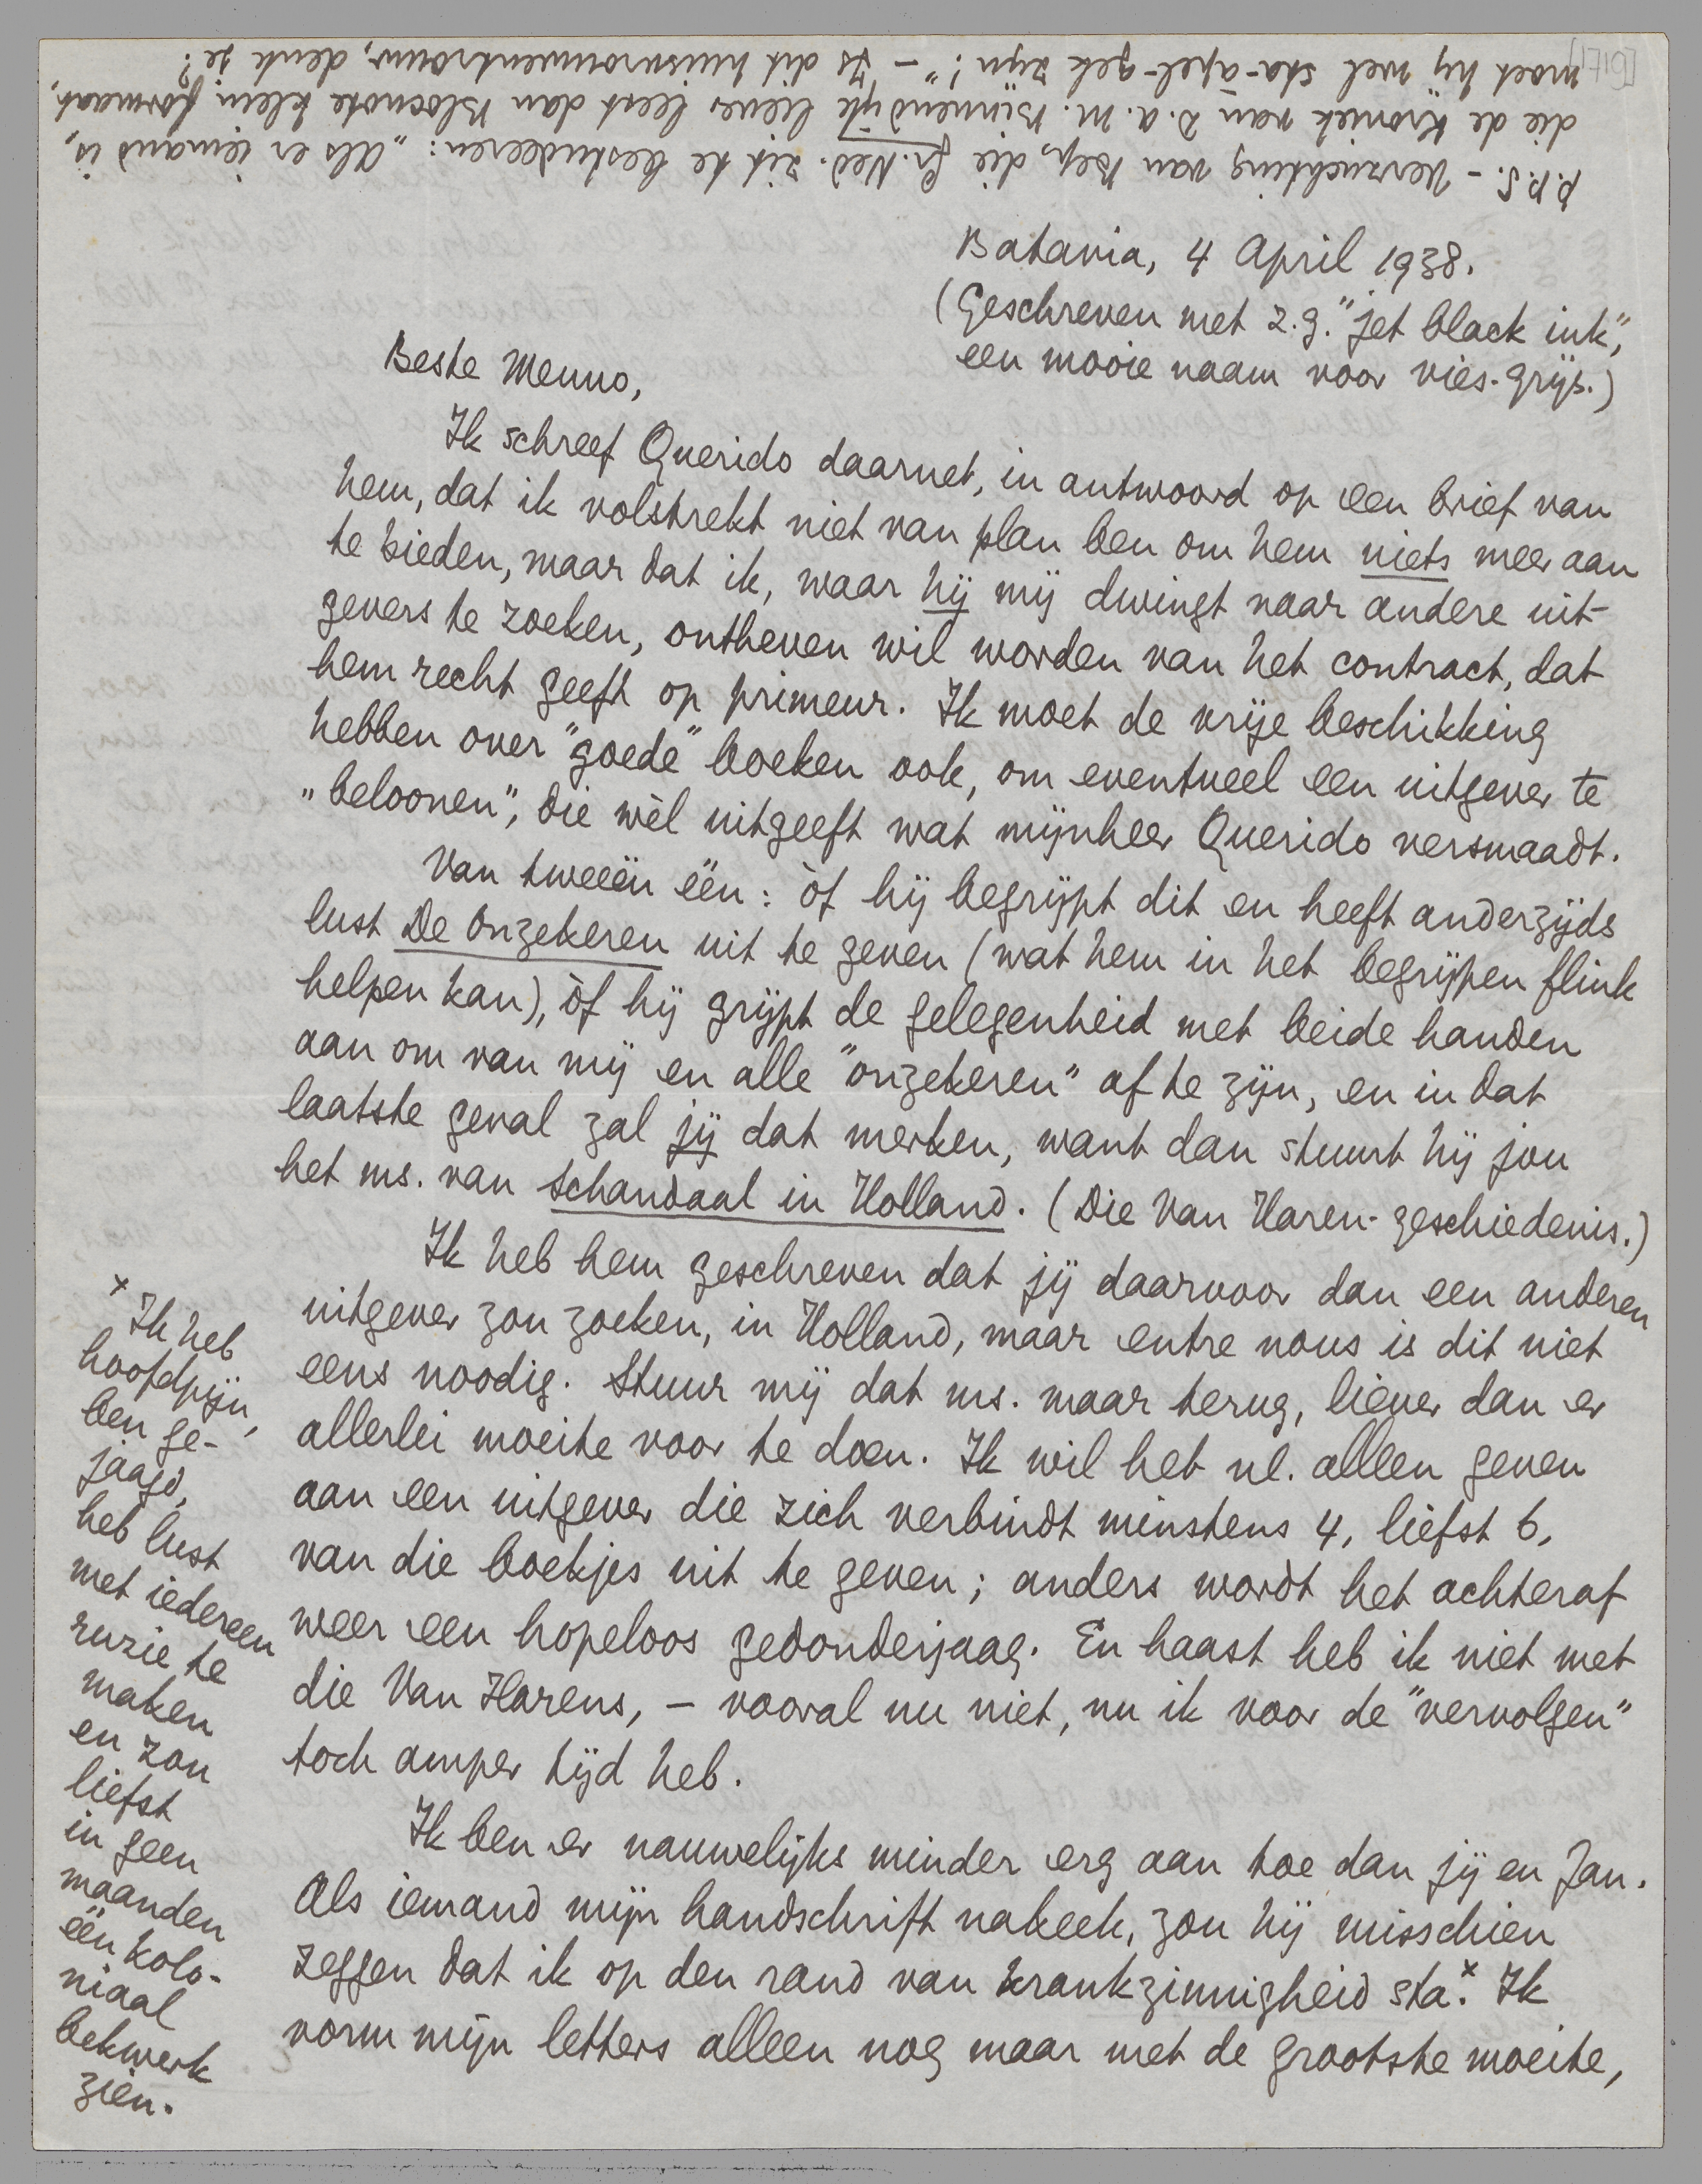 P.P.S. – Verzuchting van Bep, die Gr. Ned. zit te bestudeeren: „Als er iemand is,
die de kroniek van D.A.M. Binnendijk liever leest dan Blocnote klein formaat,
moet hij wel sta-apel-gek zijn!" – Is dit huisvrouwentrouw, denk je?
Batavia, 4 April 1938.
(Geschreven met z.g. "jet black ink",
een mooie naam voor vies-grijs.)
Beste Menno,
Ik schreef Querido daarnet, in antwoord op een brief van
hem, dat ik volstrekt niet van plan ben om hem niets meer aan
te bieden, maar dat ik, waar hij mij dwingt naar andere uit-
gevers te zoeken, ontheven wil worden van het contract, dat
hem recht geeft op primeur. Ik moet de vrije beschikking
hebben over "goede" boeken ook, om eventueel een uitgever te
„beloonen", die wèl uitgeeft wat mijnheer Querido versmaadt.
Van tweeën één: òf hij begrijpt dit en heeft anderzijds
lust De Onzekeren uit te geven (wat hem in het begrijpen flink
helpen kan), òf hij grijpt de gelegenheid met beide handen
aan om van mij en alle "onzekeren" af te zijn, en in dat
laatste geval zal jij dat merken, want dan stuurt hij jou
het ms. van Schandaal in Holland. (Die Van Haren-geschiedenis.)
Ik heb hem geschreven dat jij daarvoor dan een anderen
uitgever zou zoeken, in Holland, maar entre nous is dit niet
eens noodig. Stuur mij dat ms. maar terug, liever dan er
allerlei moeite voor te doen. Ik wil het nl. alleen geven
aan een uitgever die zich verbindt minstens 4, liefst 6,
van die boekjes uit te geven; anders wordt het achteraf
weer een hopeloos gedonderjaag. En haast heb ik niet met
die Van Harens, – vooral nu niet, nu ik voor de "vervolgen"
toch amper tijd heb.
Ik ben er nauwelijks minder erg aan toe dan jij en Jan.
Als iemand mijn handschrift nakeek, zou hij misschien
zeggen dat ik op den rand van krankzinnigheid sta.x Ik
vorm mijn letters alleen nog maar met de grootste moeite,
x Ik heb
hoofdpijn,
ben ge-
jaagd,
heb lust
met iedereen
ruzie te
maken
en zou
liefst
in geen
maanden
één kolo-
niaal
bekwerk
zien.